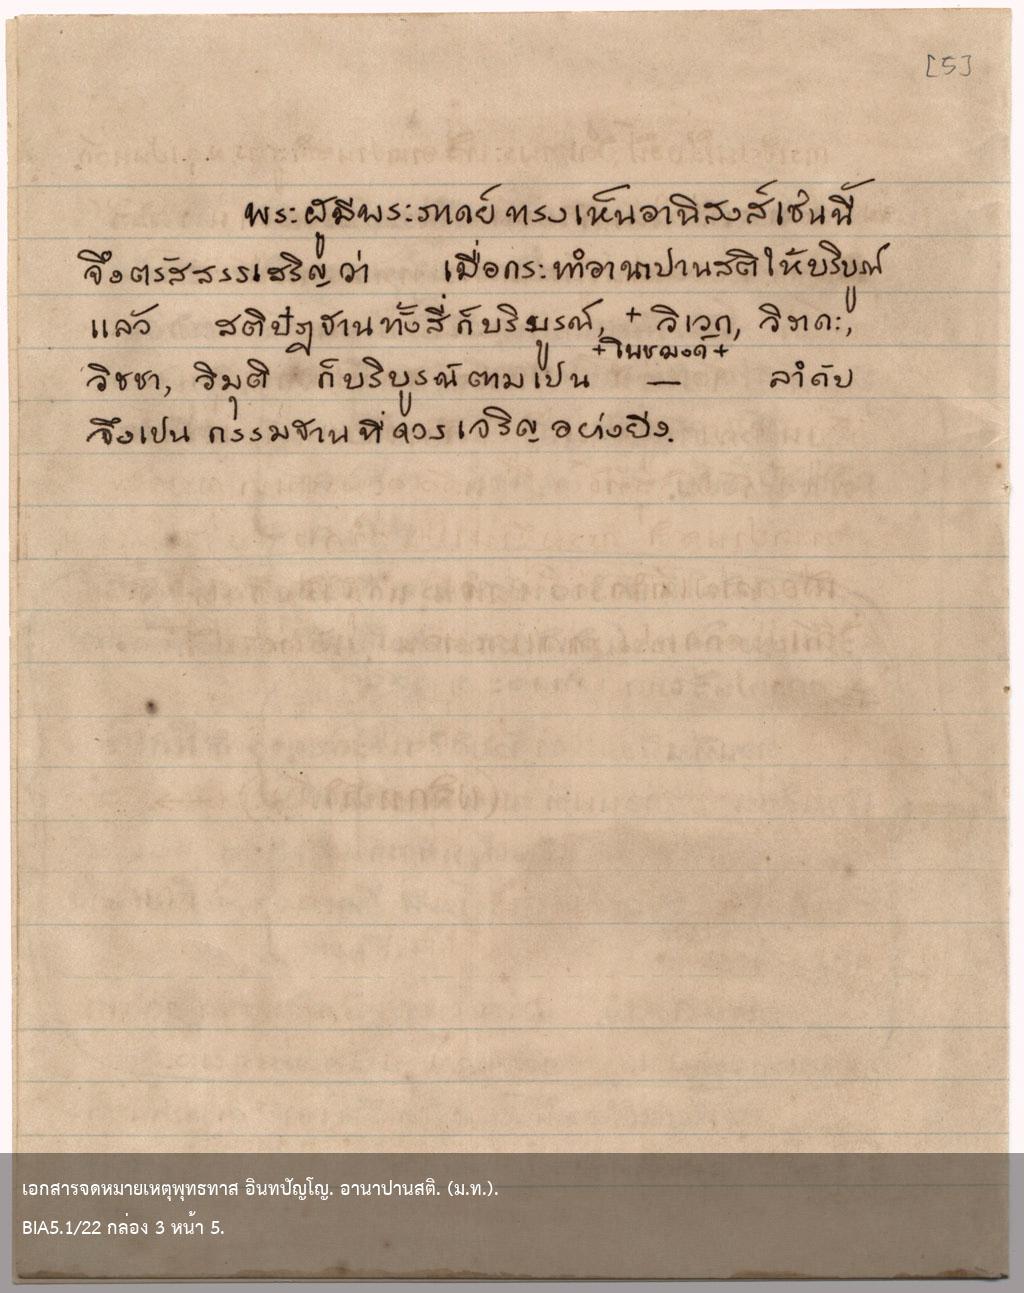 [5]
พระผู้มีพระภาคย์ ทรงเห็นอานิสงส์เช่นนี้
จึงตรัสสรรเสริญว่า เมื่อกระทำอานาปานสติให้บริบูรณ์
แล้ว สติปัฏฐานทั้งสี่ก็บริบูรณ์, + วิเวก, วิราคะ,
+โพชฌงค์+
วิชชา, วิมุติ ก็บริบูรณ์ตามเป็น — ลำดับ
จึงเป็น กรรมฐานที่ควรเจริญอย่างยิ่ง.
เอกสารจดหมายเหตุพุทธทาส อินทปัญโญ. อานาปานสติ. (ม.ท.).
BIA5.1/22 กล่อง 3 หน้า 5.